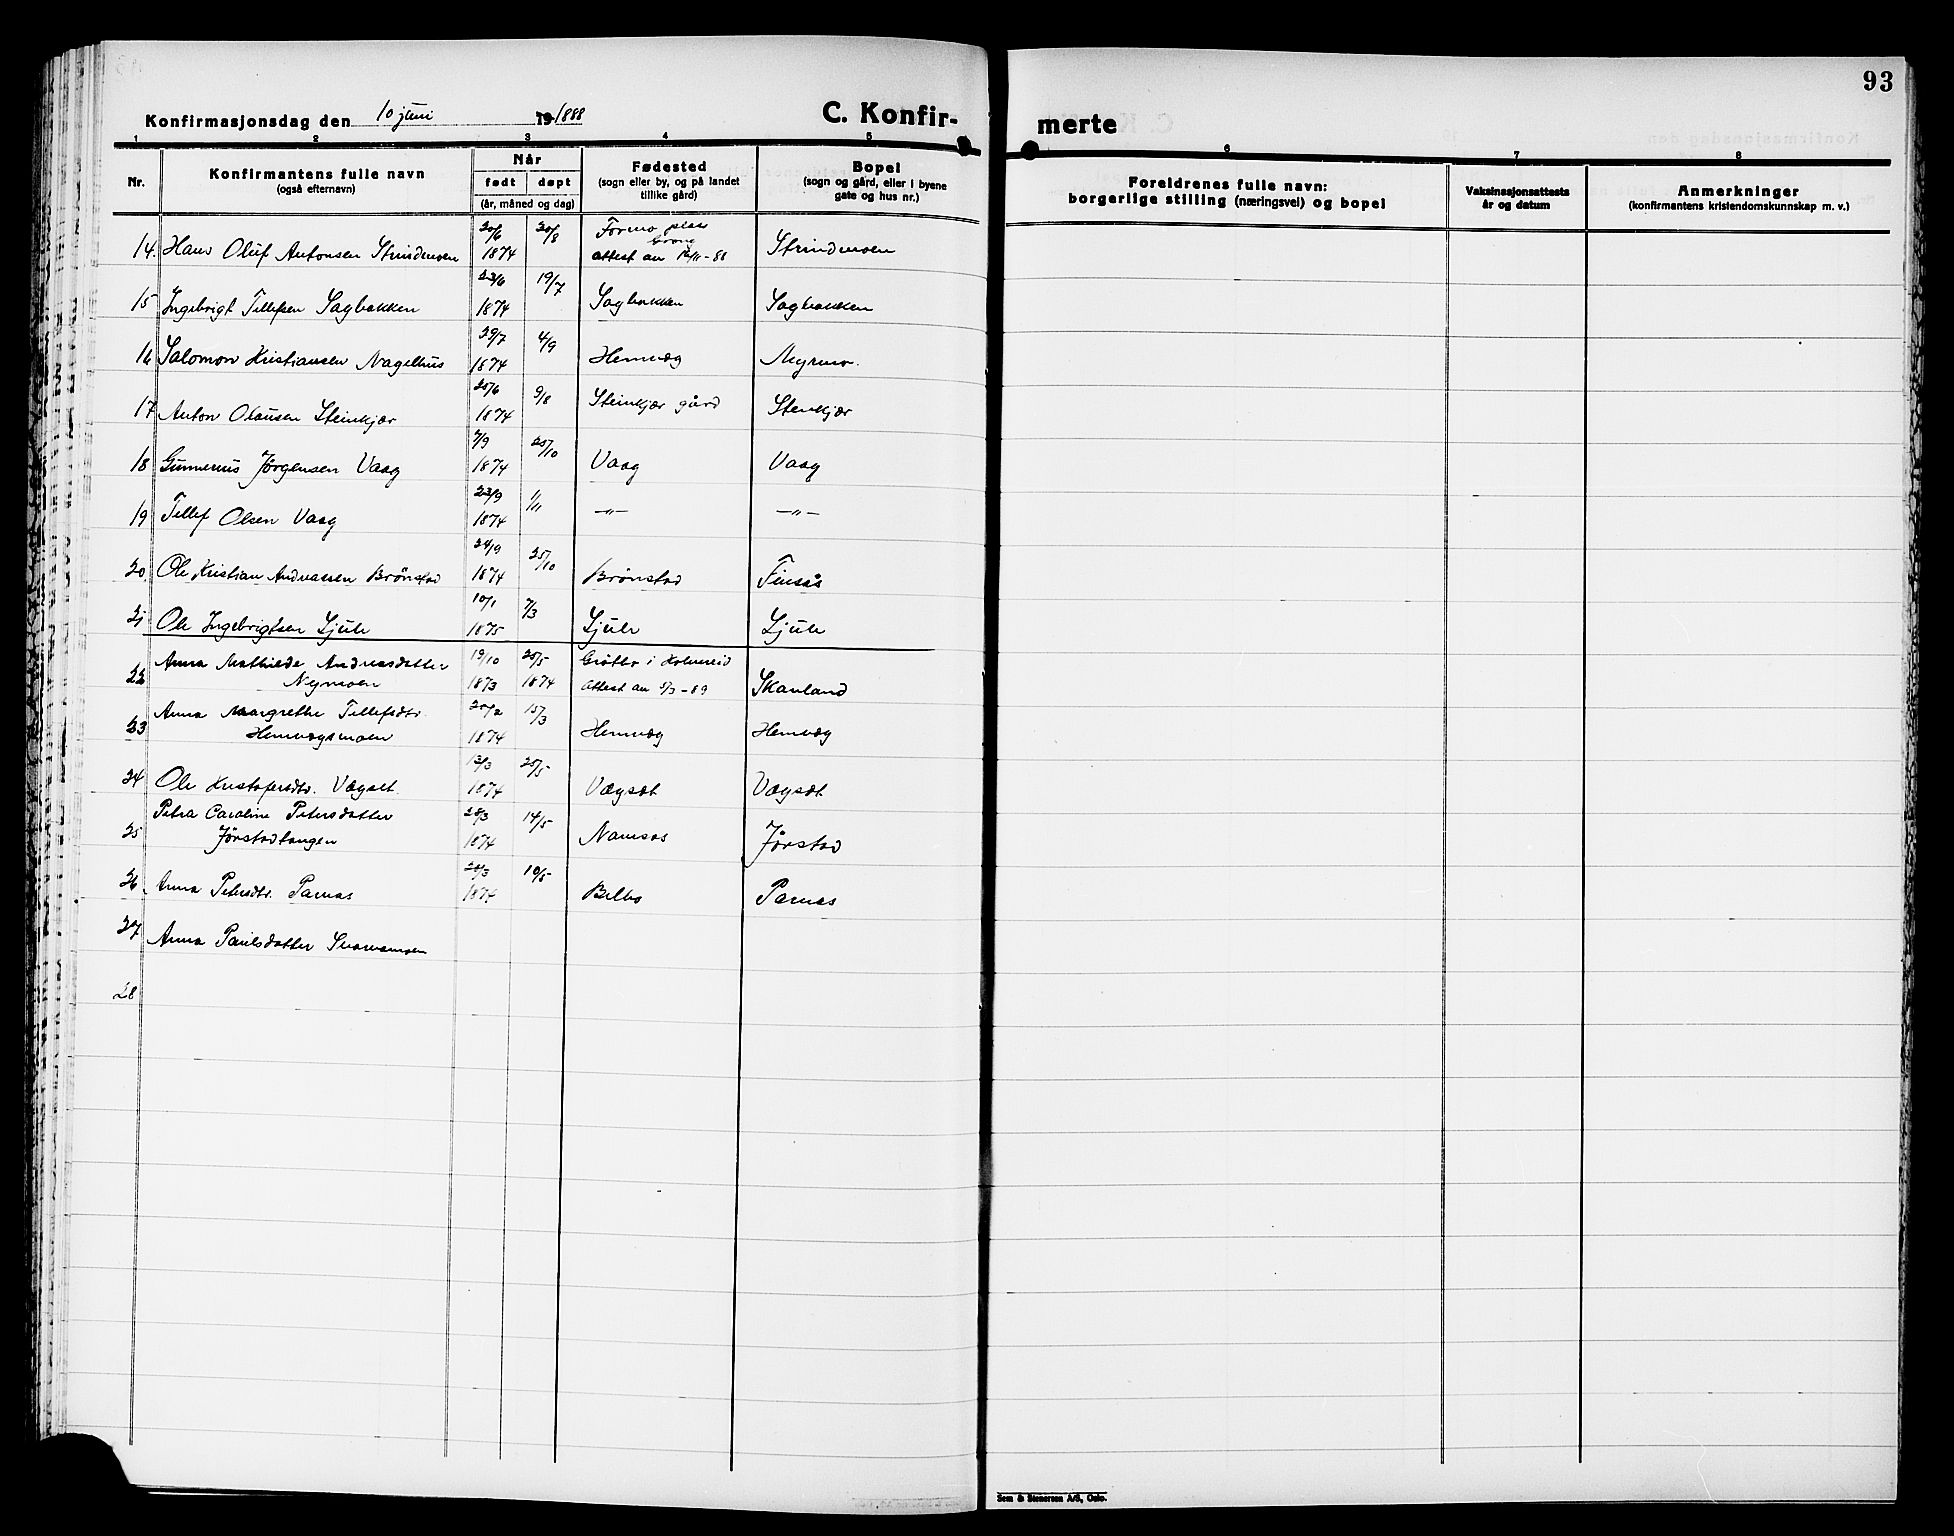 93
Konfirmasjonsdag den 10 juni 19 1888
C. Konfir-
merte
1 2 3 4 5 6 7 8
Nr.
Konfirmantens fulle navn
(også efternavn)
Når
født døpt
(år, måned og dag)
Fødested
(sogn eller by, og på landet
tillike gård)
Bopel
(sogn og gård, eller i byene
gate og hus nr.)
Foreldrenes fulle navn:
borgerlige stilling (næringsvei) og bopel
Vaksinasjonsattests
år og datum
Anmerkninger
(konfirmantens kristendomskunnskap m. v.)
14. Hans Oluf Antonsen Strindmoen 20/6 1874 20/8 Formo plass Grong attest av 12/11-88 Strindmoen
15 Ingebrigt Tellefsen Sagbakken 23/6 1874 19/7 Sagbakken Sagbakken
16 Salomon Kristiansen Nagelhus 29/7 1874 4/9 Hemvæg Myrmo.
17 Anton Olausen Steinkjær 25/6 1874 9/8 Steinkjær gård Stenkjær
18 Gunnerius Jørgensen Vaag 7/9 1874 25/10 Vaag Vaag
19 Tellef Olsen Vaag 23/9 1874 1/11 —"— —"—
20 Ole Kristian Andreassen Brønstad 24/9 1874 25/10 Brønstad Finsås
21 Ole Ingebrigtsen Ljule 10/1 1875 7/3 Ljule Ljule
22 Anna Mathilde Andreasdatter Nymoen 19/10 1873 25/5 1874 i Kolvereid Attest av 5/3-89 Skanland
23 Anna Margrethe Tellefsdtr. Hemvægsmoen 20/2 1874 15/3 Hemvæg Hemvæg
24 Ole Kristofersdtr. Vægset. 1874 25/5 Vægset Vægset
25 Petra Caroline Petersdatter Jørstadtangen 28/3 1874 14/5 Namsos Jørstad
26 Anna Petersdtr. Parnas 20/3 1874 10/5 Belbo Parnas
27 Anna Paulsdatter Snaasamoen
28
Sem & Stenersen A/S, Oslo.